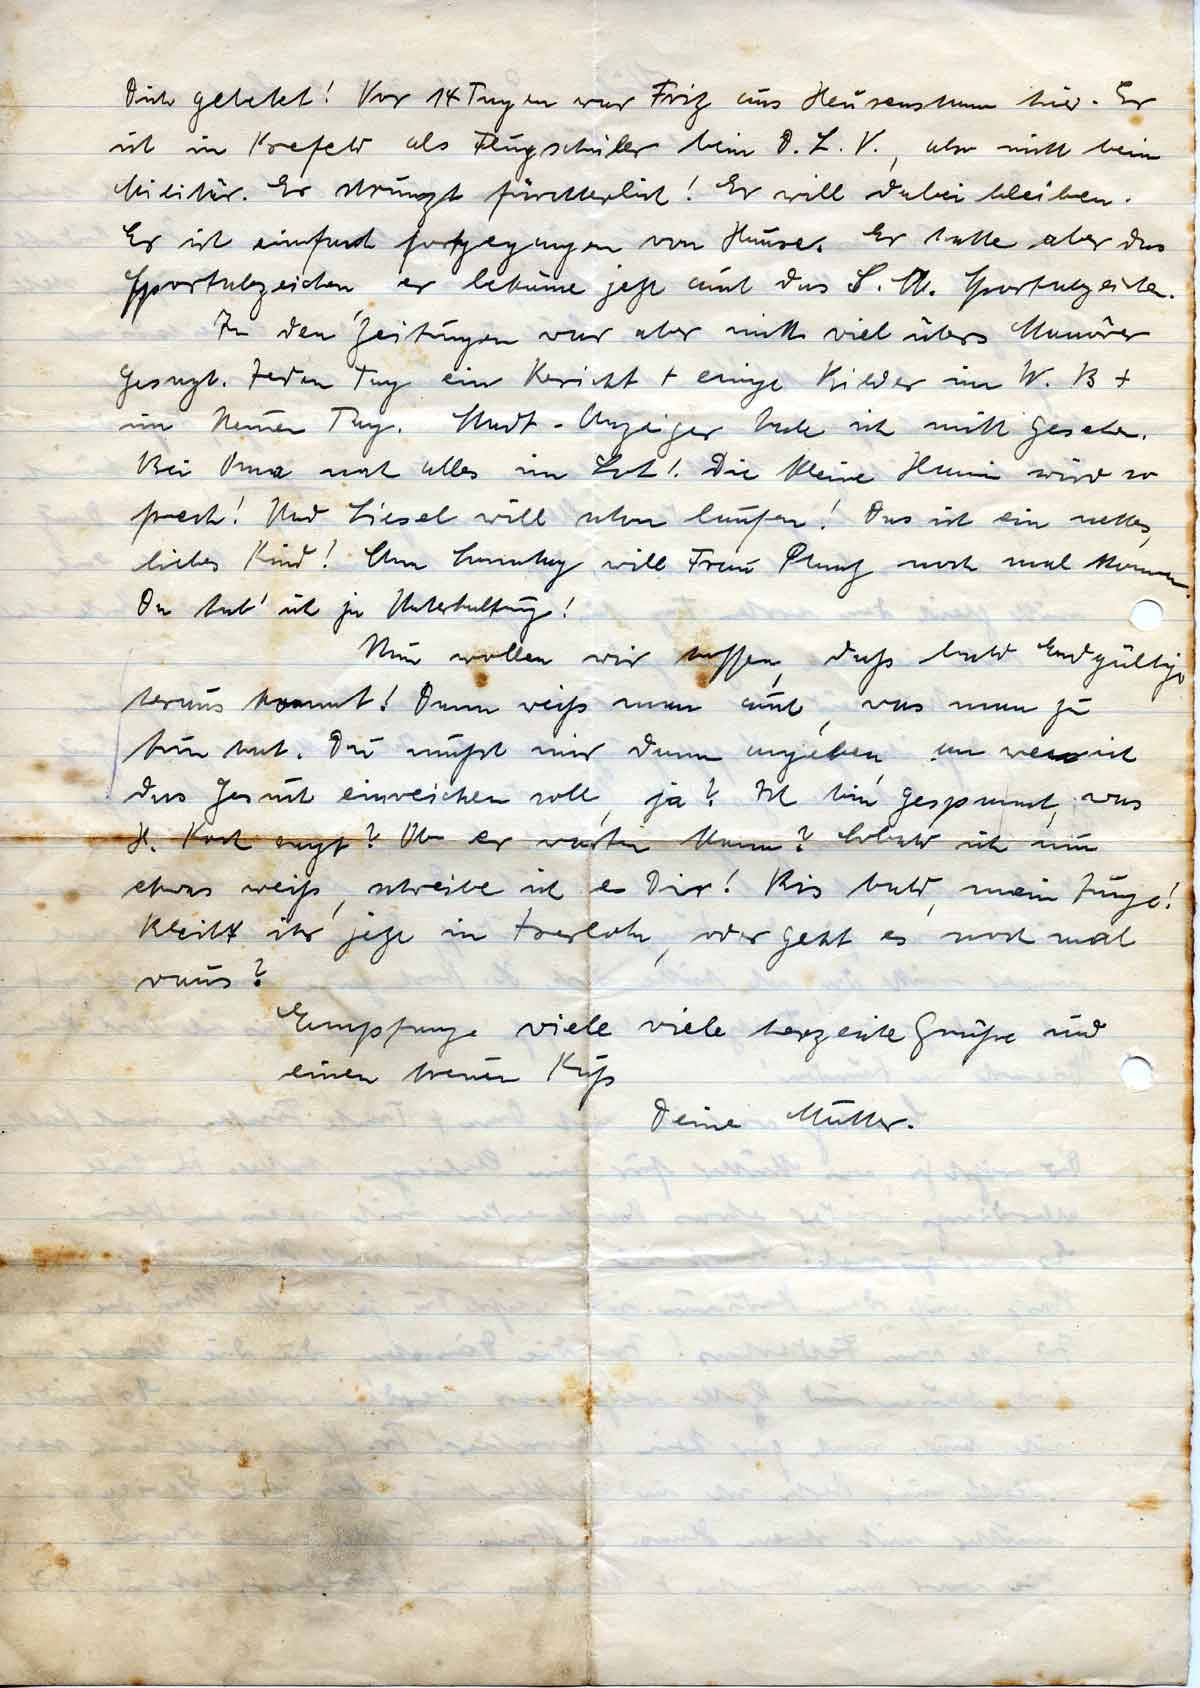 Dich gelebt! Vor 14 Tagen war Fritz aus Heusenstamm hier. Er
ist in Krefeld als Flugschüler beim D. L. V., also nicht beim
Militär. Er strunzt fürchterlich! Er will dabei bleiben.
Er ist einfach fortgegangen von Hause. Er hatte aber das
Sportabzeichen, er bekäme jetzt auch das S. A. Sportabzeichen.
In den Zeitungen war aber nicht viel übers Manöver
gesagt. Jeden Tag ein Bericht + einige Bilder im W. B +
im Neuen Tag. Stadt-Anzeiger habe ich nicht gesehen.
Bei Oma noch alles im Lot! Die kleine Hanni wird so
frech! Und Liesel will schon laufen! Das ist ein nettes,
liebes Kind! Am Sonntag will Frau noch mal kommen.
Da hab' ich ja Unterhaltung!
Nun wollen wir hoffen, daß bald Endgültiges
heraus kommt! Dann weiß man auch, was man zu
tun hat. Du mußt mir dann angeben, an wen ich
das Gesuch einreichen soll, ja? Ich bin gespannt, was
H. Koch sagt? Ob er warten kann? Sobald ich nun
etwas weiß, schreibe ich es Dir! Bis bald, mein Junge!
Bleibt ihr jetzt in Iserlohn, oder geht es noch mal
raus?
Empfange viele viele herzliche Grüße und
einen treuen Kuß
Deine Mutter.